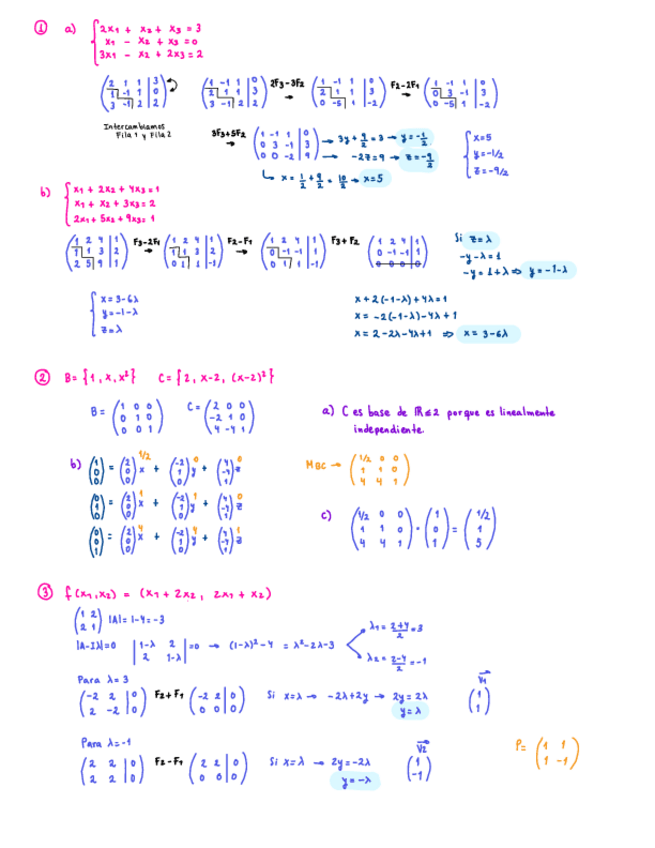 ① a) { 2x1 + x2 + x3 = 3
x1 - x2 + x3 = 0
3x1 - x2 + 2x3 = 2
(2 1 1 | 3; 1 -1 1 | 0; 3 -1 2 | 2) (1 -1 1 | 0; 2 1 1 | 3; 3 -1 2 | 2) 2F3-3F2 → (1 -1 1 | 0; 2 1 1 | 3; 0 -5 1 | -2) F2-2F1 → (1 -1 1 | 0; 0 3 -1 | 3; 0 -5 1 | -2)
Intercambiamos
Fila 1 y Fila 2
3F3+5F2 → (1 -1 1 | 0; 0 3 -1 | 3; 0 0 -2 | 9) → 3y + 9/2 = 3 → y = -1/2
→ -2z = 9 → z = -9/2
↳ x = 1/2 + 9/2 = 10/2 → x = 5
{ x = 5
y = -1/2
z = -9/2
b) { x1 + 2x2 + 4x3 = 1
x1 + x2 + 3x3 = 2
2x1 + 5x2 + 9x3 = 1
(1 2 4 | 1; 1 1 3 | 2; 2 5 9 | 1) F3-2F1 → (1 2 4 | 1; 1 1 3 | 2; 0 1 1 | -1) F2-F1 → (1 2 4 | 1; 0 -1 -1 | 1; 0 1 1 | -1) F3+F2 (1 2 4 | 1; 0 -1 -1 | 1; 0 0 0 0)
Si z = λ
-y - λ = 1
-y = 1 + λ ⇒ y = -1-λ
{ x = 3-6λ
y = -1-λ
z = λ
x + 2(-1-λ) + 4λ = 1
x = -2(-1-λ) - 4λ + 1
x = 2 - 2λ - 4λ + 1 ⇒ x = 3-6λ
② B = {1, x, x²} C = {2, x-2, (x-2)²}
B = (1 0 0; 0 1 0; 0 0 1) C = (2 0 0; -2 1 0; 4 -4 1)
a) C es base de ℝ≤2 porque es linealmente
independiente.
b) (1; 0; 0) = (2; 0; 0)x 1/2 + (-2; 1; 0)y 0 + (4; -4; 1)z 0
(0; 1; 0) = (2; 0; 0)x 1 + (-2; 1; 0)y 1 + (4; -4; 1)z 0
(0; 0; 1) = (2; 0; 0)x 4 + (-2; 1; 0)y 4 + (4; -4; 1)z 1
MBC → (1/2 0 0; 1 1 0; 4 4 1)
c) (1/2 0 0; 1 1 0; 4 4 1) · (1; 0; 1) = (1/2; 1; 5)
③ f(x1, x2) = (x1 + 2x2, 2x1 + x2)
(1 2; 2 1) |A| = 1-4 = -3
|A-Iλ| = 0 |1-λ 2; 2 1-λ| = 0 → (1-λ)² - 4 = λ² - 2λ - 3
λ1 = 2+4/2 = 3
λ2 = 2-4/2 = -1
Para λ = 3
(-2 2 | 0; 2 -2 | 0) F2+F1 (-2 2 | 0; 0 0 | 0) Si x = λ → -2λ + 2y → 2y = 2λ
y = λ
V1 (1; 1)
Para λ = -1
(2 2 | 0; 2 2 | 0) F2-F1 (2 2 | 0; 0 0 | 0) Si x = λ → 2y = -2λ
y = -λ
V2 (1; -1)
P = (1 1; 1 -1)